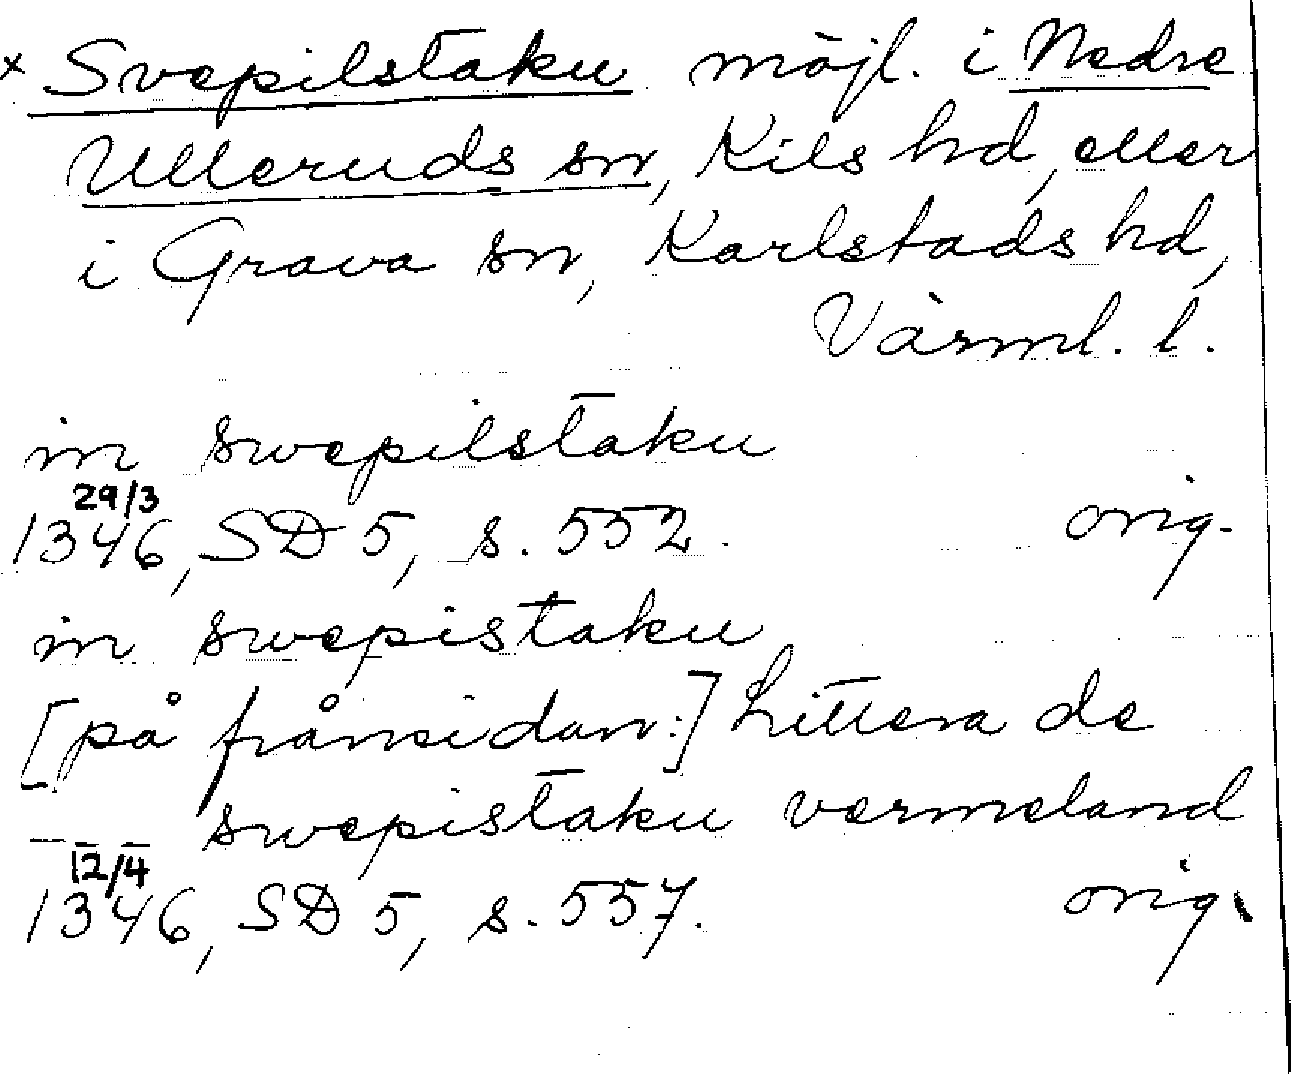 × Svepilstaku möjl. i Nedre
Ulleruds sn, Kils hd, eller
i Grava sn, Karlstads hd,
Värml. l.
in swepilstaku
29/3
1346, SD 5, s. 552. orig.
in swepistaku
[på frånsidan:] Littera de
_ _ _ swepistaku vermeland
12/4
1346, SD 5, s. 557. orig.